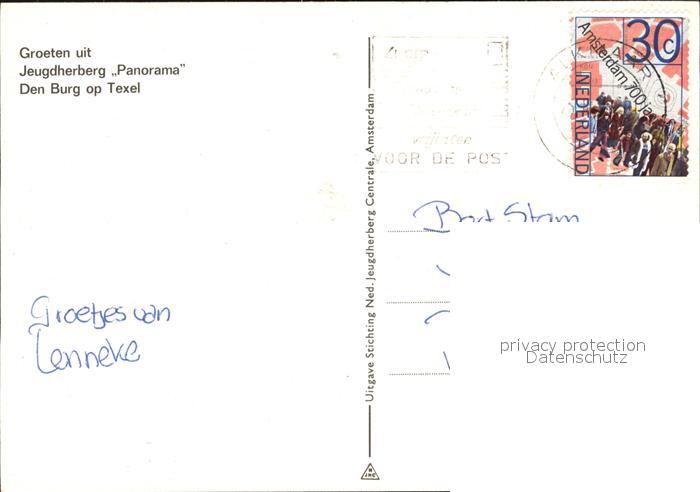 Groeten uit
Jeugdherberg „Panorama”
Den Burg op Texel
Groetjes van
Lenneke
Uitgave Stichting Ned. Jeugdherberg Centrale, Amsterdam
vrijlaten
VOOR DE POST
30c
Amsterdam 700 jaar
NEDERLAND
Bart Stam
privacy protection
Datenschutz